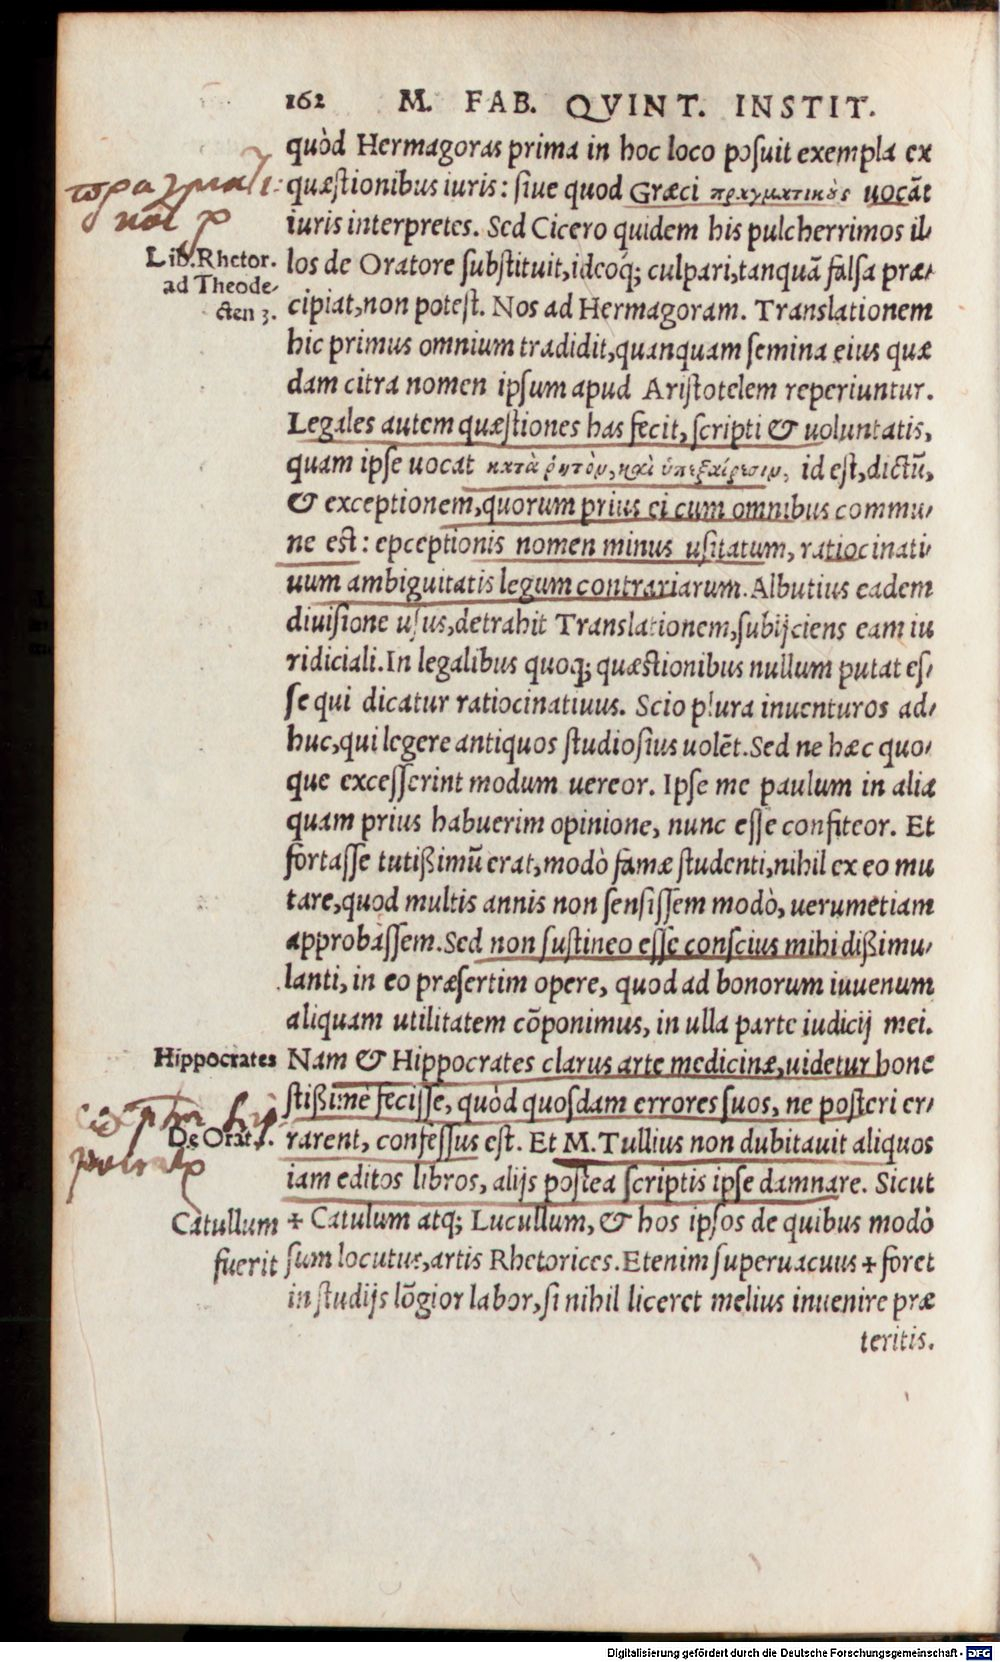 162 M. FAB. QVINT. INSTIT.
quòd Hermagoras prima in hoc loco posuit exempla ex
quæstionibus iuris: siue quod Græci πραγματικὸς uocāt
iuris interpretes. Sed Cicero quidem his pulcherrimos il-
Lib. Rhetor.
ad Theode-
cten 3.
los de Oratore substituit, ideoq; culpari, tanquā falsa præ-
cipiat, non potest. Nos ad Hermagoram. Translationem
hic primus omnium tradidit, quanquam semina eius quæ
dam citra nomen ipsum apud Aristotelem reperiuntur.
Legales autem quæstiones has fecit, scripti & uoluntatis,
quam ipse uocat κατὰ ῥητὸν, καὶ ὑπεξαίρεσιν, id est, dictū,
& exceptionem, quorum prius ei cum omnibus commu-
ne est: epceptionis nomen minus usitatum, ratiocinati-
uum ambiguitatis legum contrariarum. Albutius eadem
diuisione usus, detrahit Translationem, subijciens eam iu
ridiciali. In legalibus quoq; quæstionibus nullum putat es-
se qui dicatur ratiocinatiuus. Scio plura inuenturos ad-
huc, qui legere antiquos studiosius uolēt. Sed ne hæc quo-
que excesserint modum uereor. Ipse me paulum in alia
quam prius habuerim opinione, nunc esse confiteor. Et
fortasse tutißimū erat, modò famæ studenti, nihil ex eo mu
tare, quod multis annis non sensissem modò, uerumetiam
approbassem. Sed non sustineo esse conscius mihi dißimu-
lanti, in eo præsertim opere, quod ad bonorum iuuenum
aliquam utilitatem cōponimus, in ulla parte iudicij mei.
Hippocrates
Nam & Hippocrates clarus arte medicinæ, uidetur hone
stißimè fecisse, quòd quosdam errores suos, ne posteri er-
De Orat.
rarent, confessus est. Et M. Tullius non dubitauit aliquos
iam editos libros, alijs postea scriptis ipse damnare. Sicut
Catullum
+ Catulum atq; Lucullum, & hos ipsos de quibus modò
fuerit
sum locutus, artis Rhetorices. Etenim superuacuus + foret
in studijs lōgior labor, si nihil liceret melius inuenire præ
teritis.
Digitalisierung gefördert durch die Deutsche Forschungsgemeinschaft - DFG